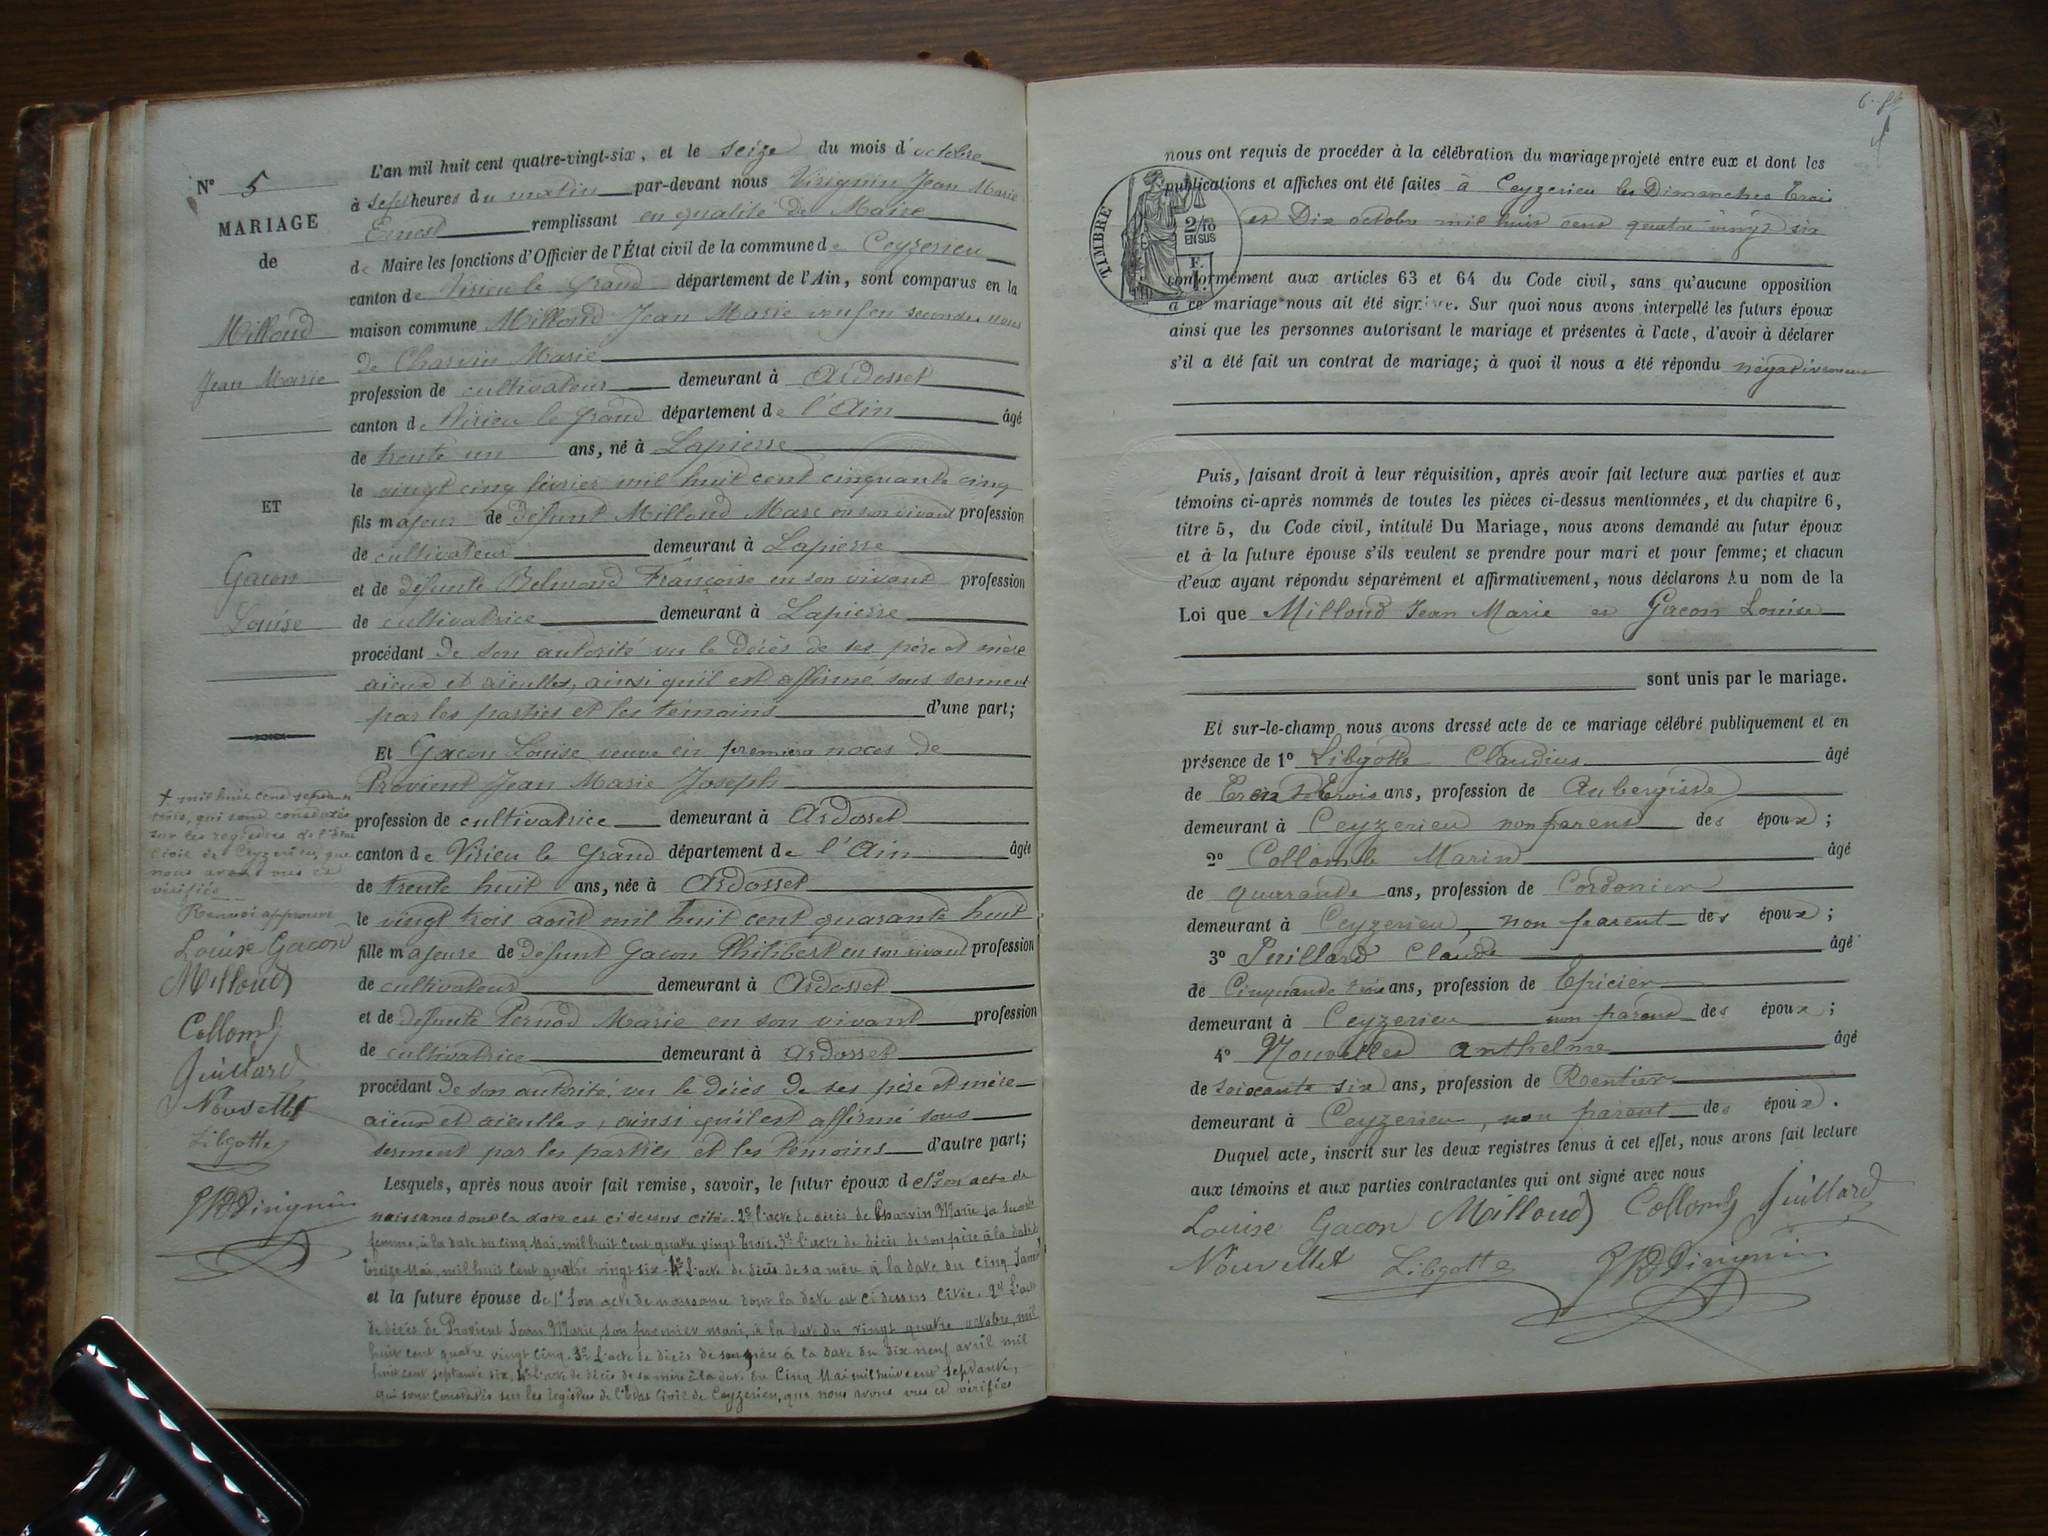 N° 5
MARIAGE
de
Milloud
Jean Marie
ET
Gacon
Louise
L'an mil huit cent quatre-vingt-six, et le seize du mois d'octobre
à sept heures du matin par-devant nous Virignin Jean Marie
Ernest remplissant en qualité de Maire
de Maire les fonctions d'Officier de l'État civil de la commune de Ceyzerieu
canton de Virieu le Grand département de l'Ain, sont comparus en la
maison commune Milloud Jean Marie veuf en secondes noces
de Charvin Marie
profession de cultivateur demeurant à Ardosset
canton de Virieu le Grand département de l'Ain âgé
de trente un ans, né à Lapierre
le vingt cinq février mil huit cent cinquante cinq
fils majeur de Défunt Milloud Marc en son vivant profession
de cultivateur demeurant à Lapierre
et de Défunte Belmond Françoise en son vivant profession
de cultivatrice demeurant à Lapierre
procédant de son autorité vu le Décès de ses père et mère
aïeux et aïeulles, ainsi qu'il est affirmé sous serment
par les parties et les témoins d'une part;
Et Gacon Louise veuve en premières noces de
Provient Jean Marie Joseph
profession de cultivatrice demeurant à Ardosset
canton de Virieu le Grand département de l'Ain âgée
de trente huit ans, née à Ardosset
le vingt trois août mil huit cent quarante huit
fille majeure de Défunt Gacon Philibert en son vivant profession
de cultivateur demeurant à Ardosset
et de défunte Pernod Marie en son vivant profession
de cultivatrice demeurant à Ardosset
procédant de son autorité vu le décès de ses père et mère
aïeux et aïeulles, ainsi qu'il est affirmé sous
serment par les parties et les témoins d'autre part;
Lesquels, après nous avoir fait remise, savoir, le futur époux de 1° Son acte de
naissance dont la date est ci dessus citée. 2° l'acte de décès de Charvin Marie sa seconde
femme, à la date du cinq Mai, mil huit cent quatre vingt trois. 3° l'acte de décès de son père à la date du
treize Mai, mil huit cent quatre vingt six. 4° L'acte de décès de sa mère à la date du cinq
et la future épouse de 1° Son acte de naissance dont la date est ci dessus citée. 2° L'acte
de décès de Provient Jean Marie, son premier mari, à la date du vingt quatre octobre, mil
huit cent quatre vingt cinq. 3° L'acte de décès de son père à la date du dix neuf avril mil
huit cent septante six. 4° L'acte de décès de sa mère à la date du Cinq Mai mil huit cent septante,
qui sont constatés sur les registres de l'Etat Civil de Ceyzerieu, que nous avons vus et vérifiés
+ mil huit cent septante
trois, qui sont constatés
sur les registres de l'État
Civil de Ceyzerieu, que
nous avons vus et
vérifiés
Renvoi approuvé
Louise Gacon
Milloud
Collomb
Juillard
Nouvellet
Libgotte
Virignin
nous ont requis de procéder à la célébration du mariage projeté entre eux et dont les
publications et affiches ont été faites à Ceyzerieu les Dimanches Trois
et Dix octobre mil huit cent quatre vingt six
TIMBRE
2/10
EN SUS
conformément aux articles 63 et 64 du Code civil, sans qu'aucune opposition
à ce mariage nous ait été signifiée. Sur quoi nous avons interpellé les futurs époux
ainsi que les personnes autorisant le mariage et présentes à l'acte, d'avoir à déclarer
s'il a été fait un contrat de mariage; à quoi il nous a été répondu négativement
Puis, faisant droit à leur réquisition, après avoir fait lecture aux parties et aux
témoins ci-après nommés de toutes les pièces ci-dessus mentionnées, et du chapitre 6,
titre 5, du Code civil, intitulé Du Mariage, nous avons demandé au futur époux
et à la future épouse s'ils veulent se prendre pour mari et pour femme; et chacun
d'eux ayant répondu séparément et affirmativement, nous déclarons Au nom de la
Loi que Milloud Jean Marie et Gacon Louise
sont unis par le mariage.
Et sur-le-champ nous avons dressé acte de ce mariage célébré publiquement et en
présence de 1° Libgotte Claudius âgé
de ans, profession de Aubergiste
demeurant à Ceyzerieu non parent des époux;
2° Collomb Marin âgé
de quarante ans, profession de Cordonier
demeurant à Ceyzerieu, non parent des époux;
3° Juillard Claude âgé
de Cinquante trois ans, profession de Epicier
demeurant à Ceyzerieu non parent des époux;
4° Nouvellet Anthelme âgé
de soixante six ans, profession de Rentier
demeurant à Ceyzerieu, non parent des époux.
Duquel acte, inscrit sur les deux registres tenus à cet effet, nous avons fait lecture
aux témoins et aux parties contractantes qui ont signé avec nous
Louise Gacon Milloud Collomb Juillard
Nouvellet Libgotte Virignin